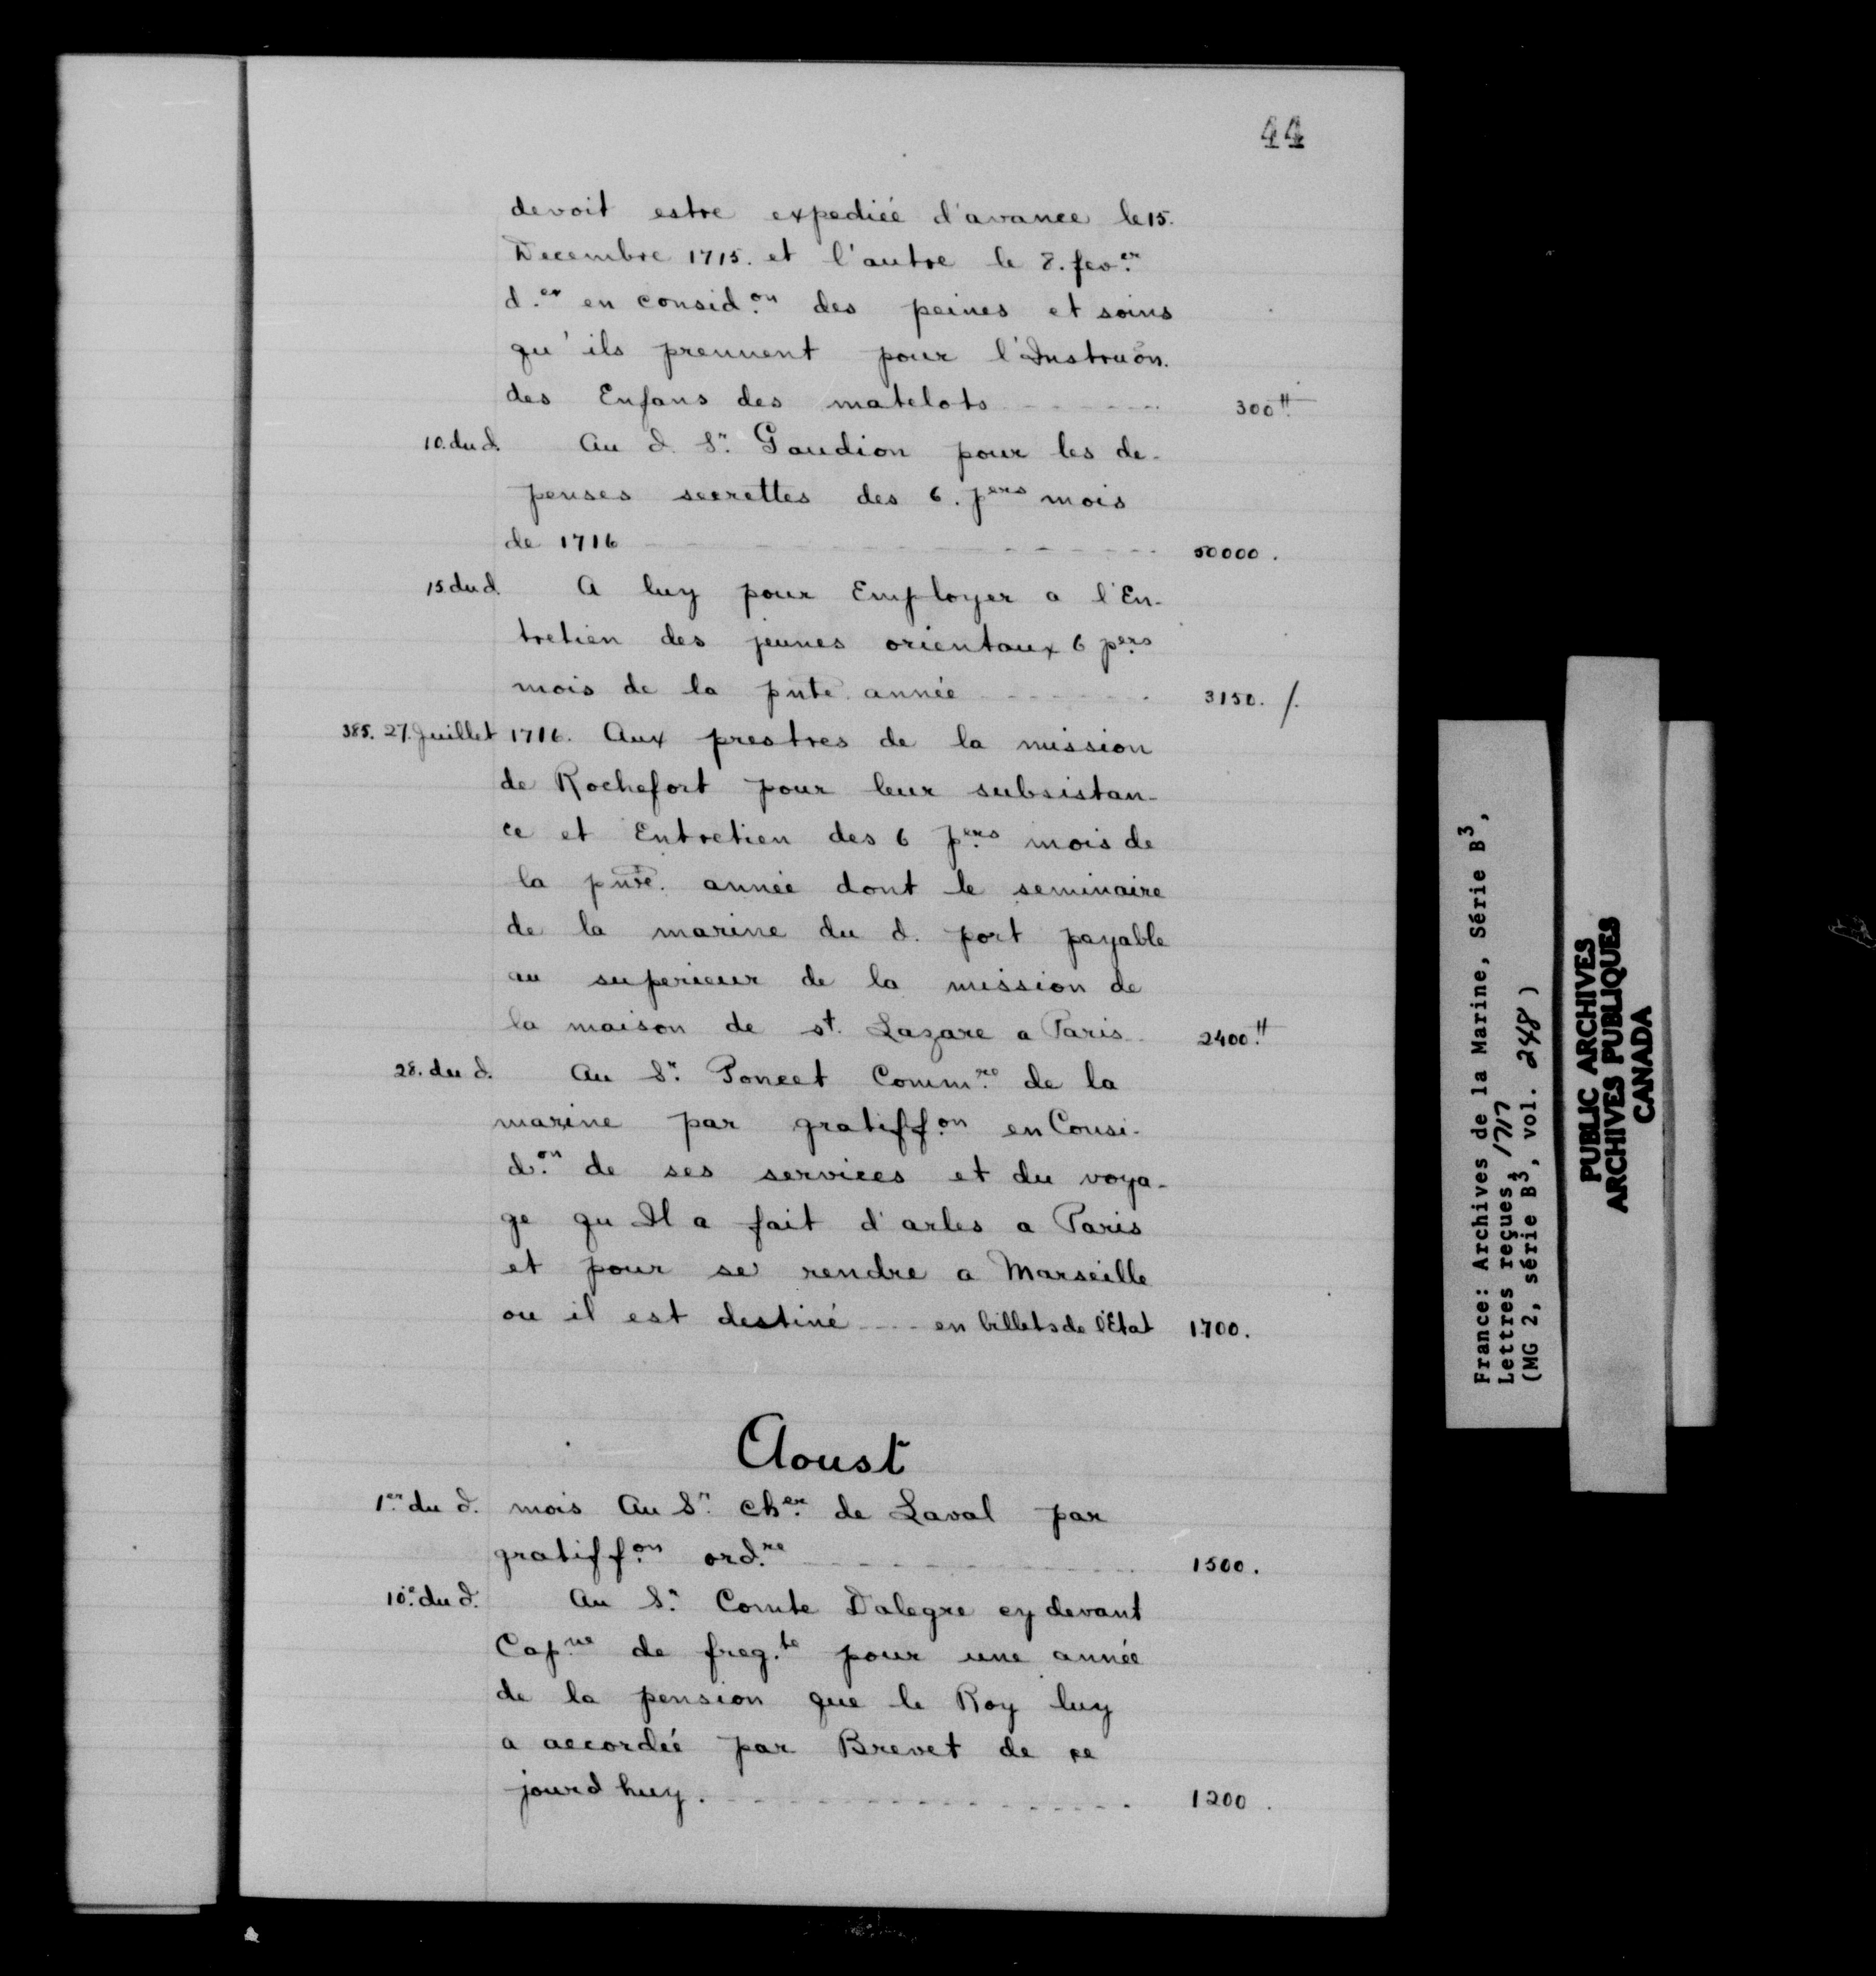 44
devoit estre expediée d'avance le 15.
Decembre 1715. et l'autre le 8. fev.er
d.er en consid.on des peines et soins
qu'ils prennent pour l'Instruõn.
des Enfans des matelots - - - - 300 ₶
10. du d. Au d. Sr. Gaudion pour les de-
penses secrettes des 6. pers mois
de 1716 - - - - 50000.
15 du d. A luy pour Employer a l'En-
tretien des jeunes orientaux 6 pers
mois de la pnte. année - - - - 3150. /.
385. 27. Juillet 1716. Aux prestres de la mission
de Rochefort pour leur subsistan-
ce et Entretien des 6 pers mois de
la pnte. année dont le seminaire
de la marine du d. port payable
au superieur de la mission de
la maison de st. Lazare a Paris 2400 ₶
28. du d. Au Sr. Poncet Comm.re de la
marine par gratiff.on en Consi-
d.on de ses services et du voya-
ge qu Il a fait d'arles a Paris
et pour se rendre a Marseille
ou il est destiné - - - en billets de l'Etat 1700.
Aoust
1.er du d. mois Au Sr. cher. de Laval par
gratiff.on ord.re - - - - 1500.
10.e du d. Au Sr. Comte Dalegre cy devant
Cap.ne de freg.te pour une année
de la pension que le Roy luy
a accordée par Brevet de ce
jourd huy. - - - - 1200.
France: Archives de la Marine, Série B3,
Lettres reçues, 1717
(MG 2, série B3, vol. 248 )
PUBLIC ARCHIVES
ARCHIVES PUBLIQUES
CANADA